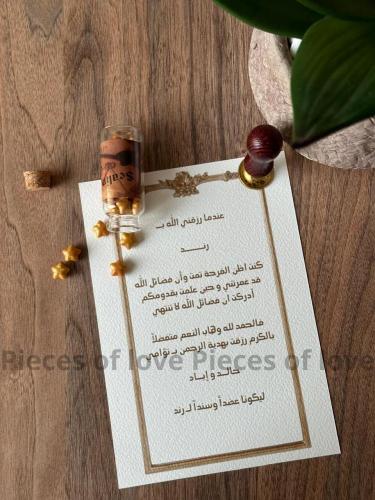 عندما رزقني الله بـ
رنـــد
كنت اظن الفرحة تمت وأن فضائل الله
قد غمرتني و حين علمت بقدومكم
أدركت ان فضائل الله لا تنتهي
فالحمد لله وهاب النعم متفضلاً
بالكرم رزقت بهدية الرحمن بـ توأمي
خالـد و إيـاد
ليكونا عضداً وسنداً لـ رند
Pieces of love Pieces of love